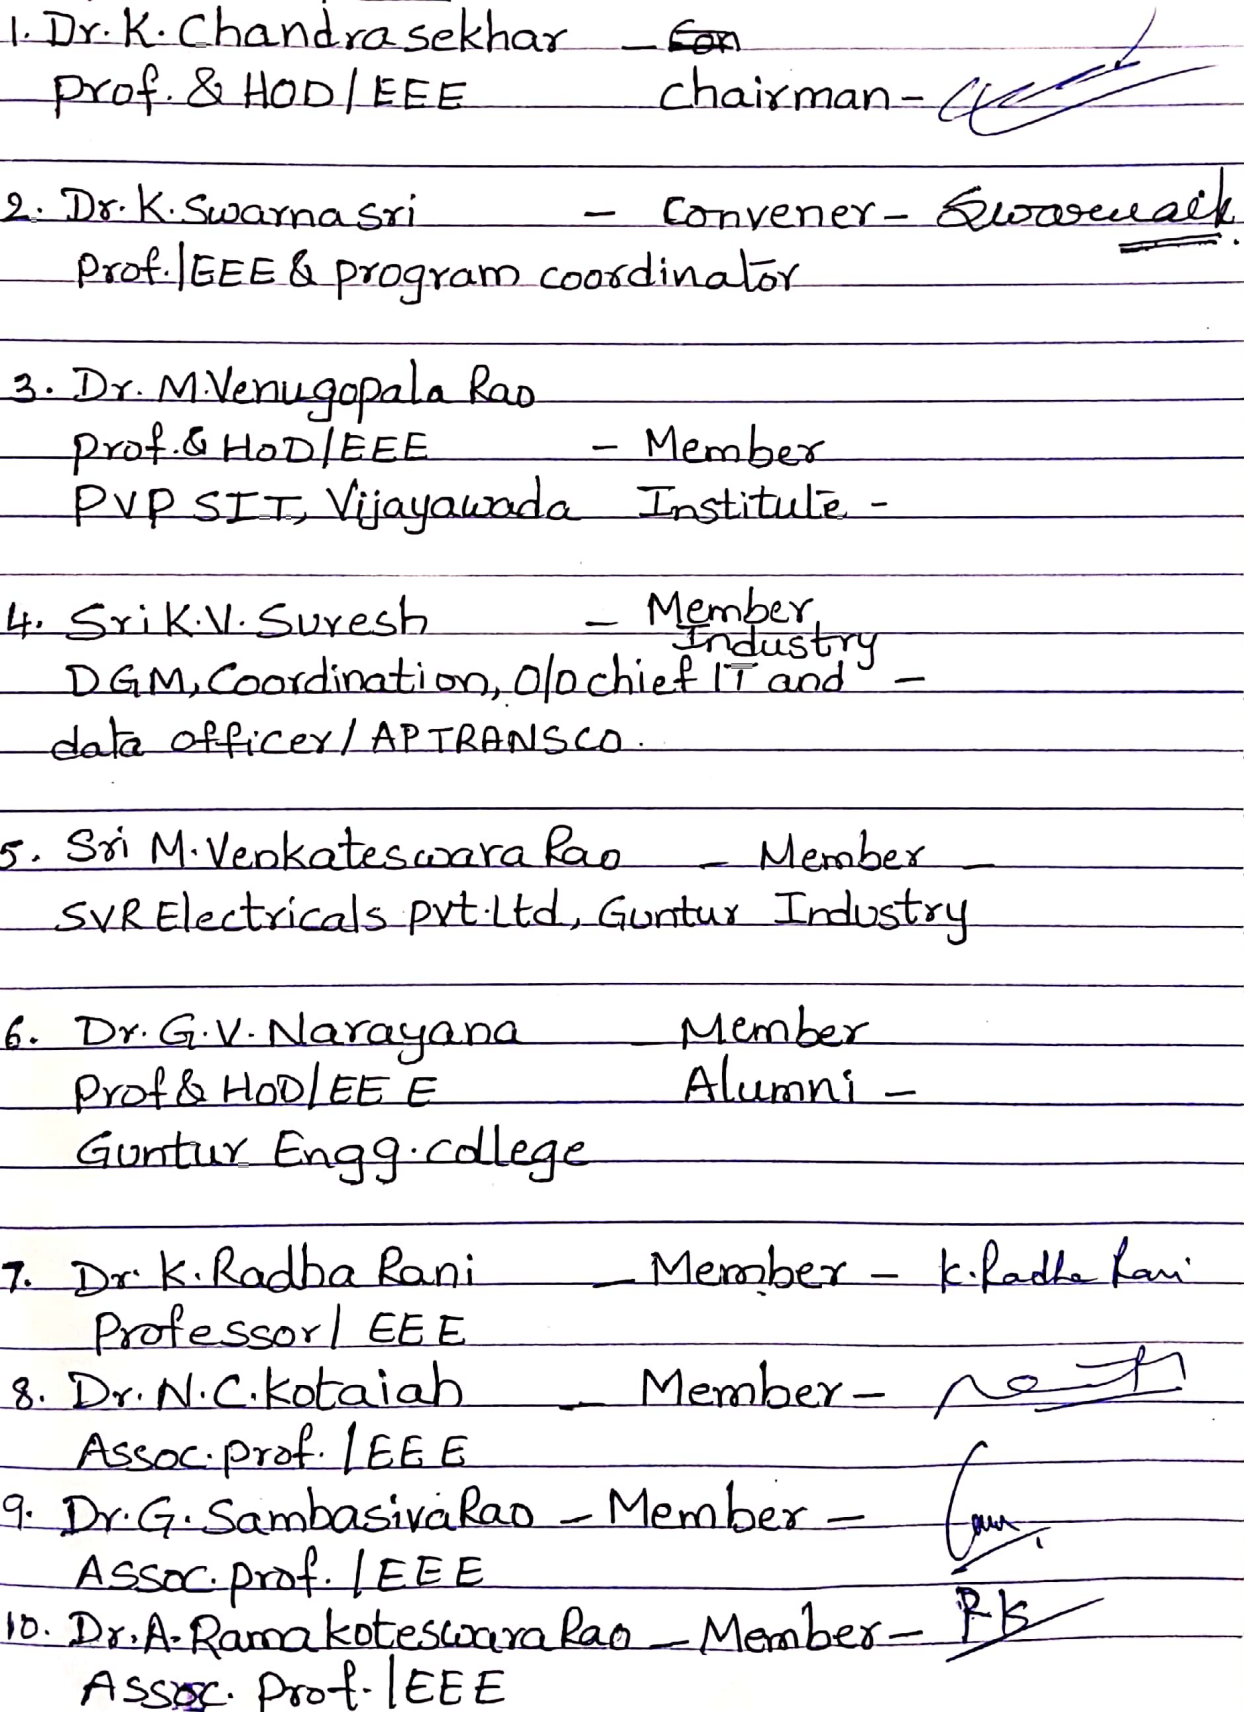 1. Dr. K. Chandrasekhar - Con
Prof. & HOD/EEE chairman -
2. Dr. K. Swarnasri - Convener -
Prof./EEE & program coordinator
3. Dr. M. Venugopala Rao
Prof. & HoD/EEE - Member
PVP SIT, Vijayawada Institute -
4. Sri K.V. Suresh - Member,
Industry
DGM, Coordination, O/o chief IT and -
data officer/APTRANSCO.
5. Sri M. Venkateswara Rao - Member -
SVR Electricals pvt.Ltd, Guntur Industry
6. Dr. G.V. Narayana - Member
Prof & HoD/EEE Alumni -
Guntur Engg. college
7. Dr. K. Radha Rani - Member - K. Radha Rani
Professor/ EEE
8. Dr. N.C. Kotaiah - Member -
Assoc. prof. /EEE
9. Dr. G. Sambasiva Rao - Member -
Assoc. prof. /EEE
10. Dr. A. Ramakoteswara Rao - Member - RK
Assoc. Prof. /EEE